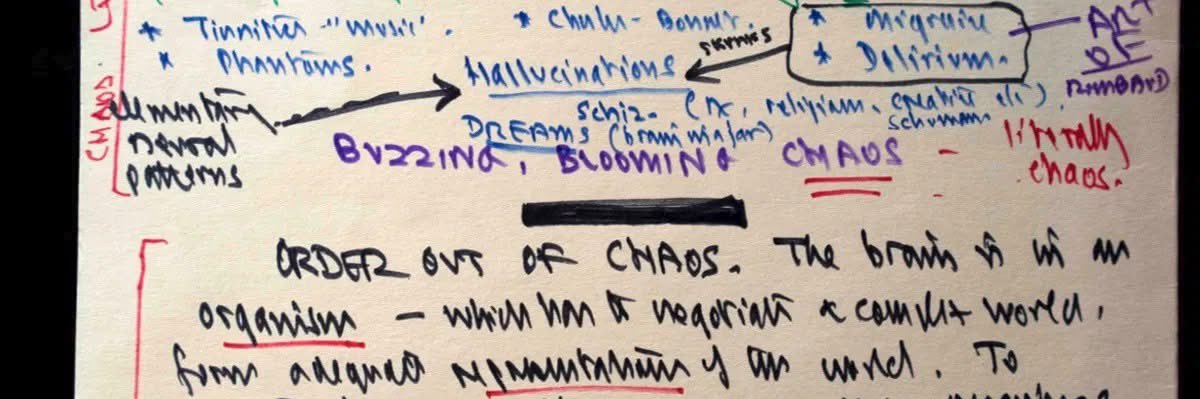 * Tinnitus - "music". * Chulu - Bonnet. * Migraine ART
* Phantoms. * Delirium. OF
Hallucinations
elementary schiz- (rx, religion, creative etc)
neural DREAMS (brain major) schumann literally
patterns BUZZING, BLOOMING CHAOS - chaos.
CHAOS
ORDER OUT OF CHAOS. The brain is in an
organism - which has to negotiate a complex world,
form adequate representations of the world. To